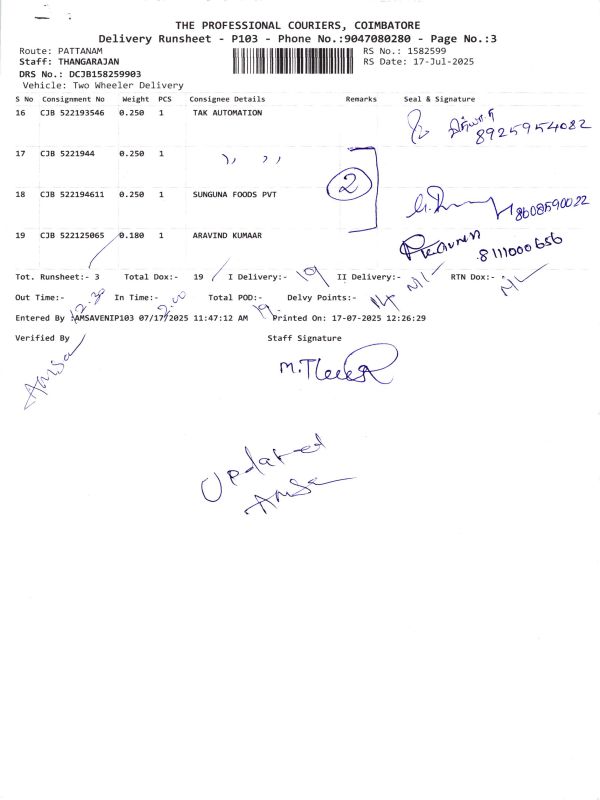 THE PROFESSIONAL COURIERS, COIMBATORE
Delivery Runsheet - P103 - Phone No.:9047080280 - Page No.:3
Route: PATTANAM RS No.: 1582599
Staff: THANGARAJAN RS Date: 17-Jul-2025
DRS No.: DCJB158259903
Vehicle: Two Wheeler Delivery
S No Consignment No Weight PCS Consignee Details Remarks Seal & Signature
16 CJB 522193546 0.250 1 TAK AUTOMATION 8925954082
17 CJB 5221944 0.250 1 ,, ,,
2
18 CJB 522194611 0.250 1 SUNGUNA FOODS PVT 8608590022
19 CJB 522125065 0.180 1 ARAVIND KUMAAR 8111000656
Tot. Runsheet:- 3 Total Dox:- 19 I Delivery:- 19 II Delivery:- NIL RTN Dox:- NIL
Out Time:- 12.30 In Time:- 2.00 Total POD:- 19 Delvy Points:- 14
Entered By :AMSAVENIP103 07/17/2025 11:47:12 AM Printed On: 17-07-2025 12:26:29
Verified By Staff Signature
Amsa
Updated
Amsa